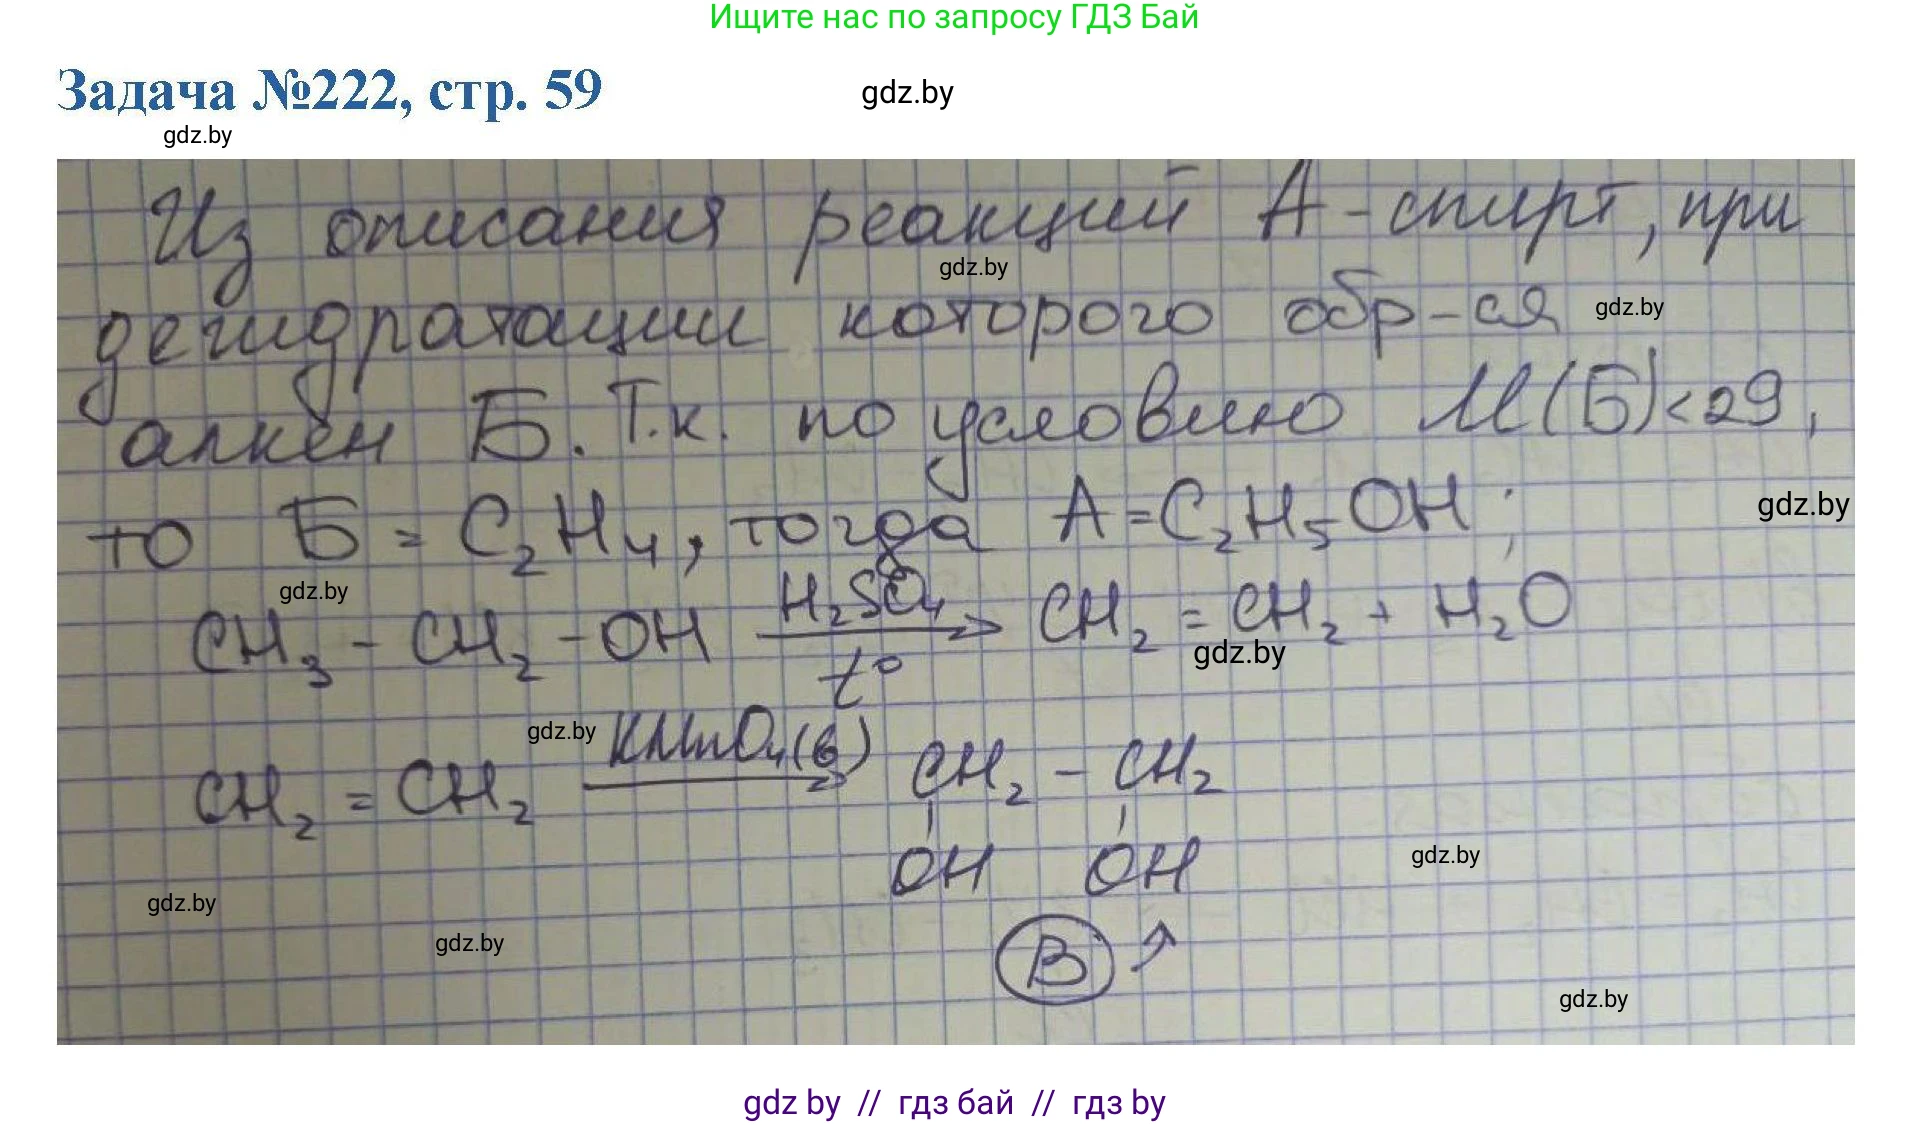 Ищите нас по запросу ГДЗ Бай
Задача №222, стр. 59
gdz.by
gdz.by
Из описания реакций А - спирт, при
gdz.by
дегидратации которого обр-ся
gdz.by
алкен Б. Т.к. по условию M(Б)<29,
то Б = C₂H₄, тогда А = C₂H₅OH;
gdz.by
gdz.by
CH₃ - CH₂ - OH H₂SO₄ t° → CH₂ = CH₂ + H₂O
gdz.by
gdz.by
CH₂ = CH₂ KMnO₄(в) → CH₂ - CH₂
OH OH
gdz.by
gdz.by
gdz.by
В
gdz.by
gdz by // гдз бай // гдз by